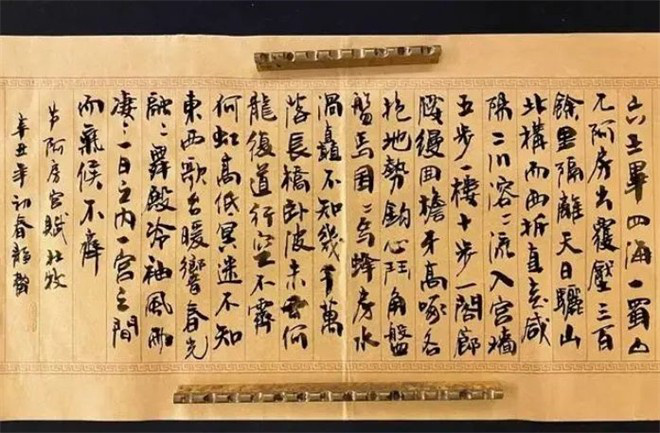 六王畢四海一蜀山
兀阿房出覆壓三百
餘里隔離天日驪山
北構而西折直走咸
陽二川溶〻流入宮墻
五步一樓十步一閣廊
腰縵回檐牙高啄各
抱地勢鈎心鬥角盤
盤焉囷〻焉蜂房水
渦矗不知幾千萬
落長橋卧波未雲何
龍復道行空不霽
何虹高低冥迷不知
東西歌台暖響春光
融〻舞殿冷袖風雨
凄〻一日之内一宮之間
而氣候不齊
阿房宮賦杜牧
辛丑年初春